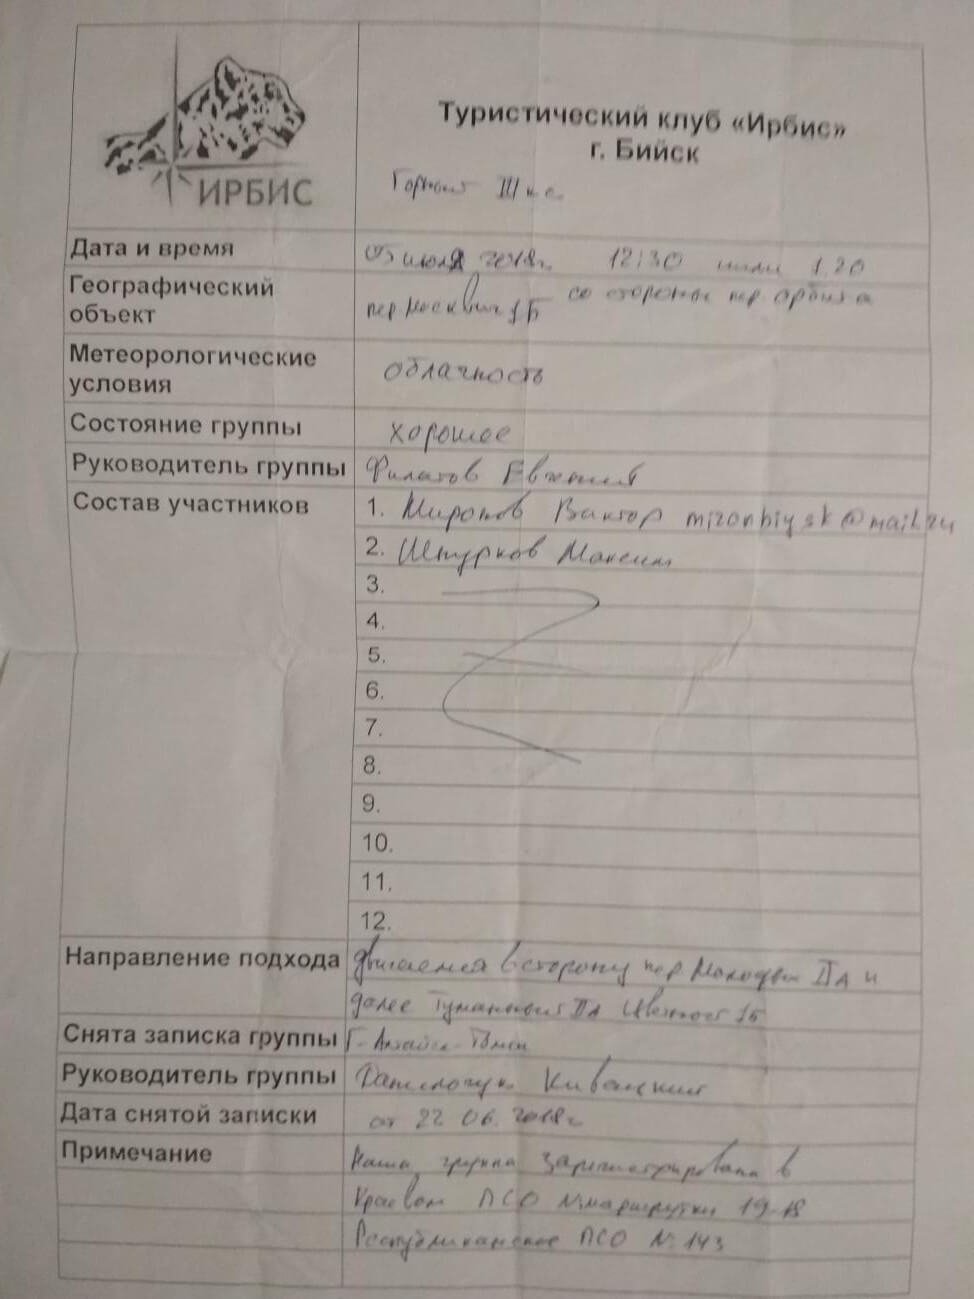 ИРБИС
Туристический клуб «Ирбис»
г. Бийск
Горный III к.с.
Дата и время
05 июля 2018г. 12:30 шли 1.20
Географический объект
пер Москвич 1Б со стороны пер. Орбита
Метеорологические условия
облачность
Состояние группы
хорошее
Руководитель группы
Филатов Евгений
Состав участников
1. Миронов Виктор mironbiysk@mail.ru
2. Штурков Максим
3.
4.
5.
6.
7.
8.
9.
10.
11.
12.
Направление подхода
двигаемся в сторону пер IIА и
далее Туманный IIА 1Б
Снята записка группы
Г-Алтайск-Томск
Руководитель группы
Дата снятой записки
от 22 06. 2018г
Примечание
Наша группа зарегистрирована в
Краевом ПСО №маршрутки 19-18
Республиканское ПСО № 143